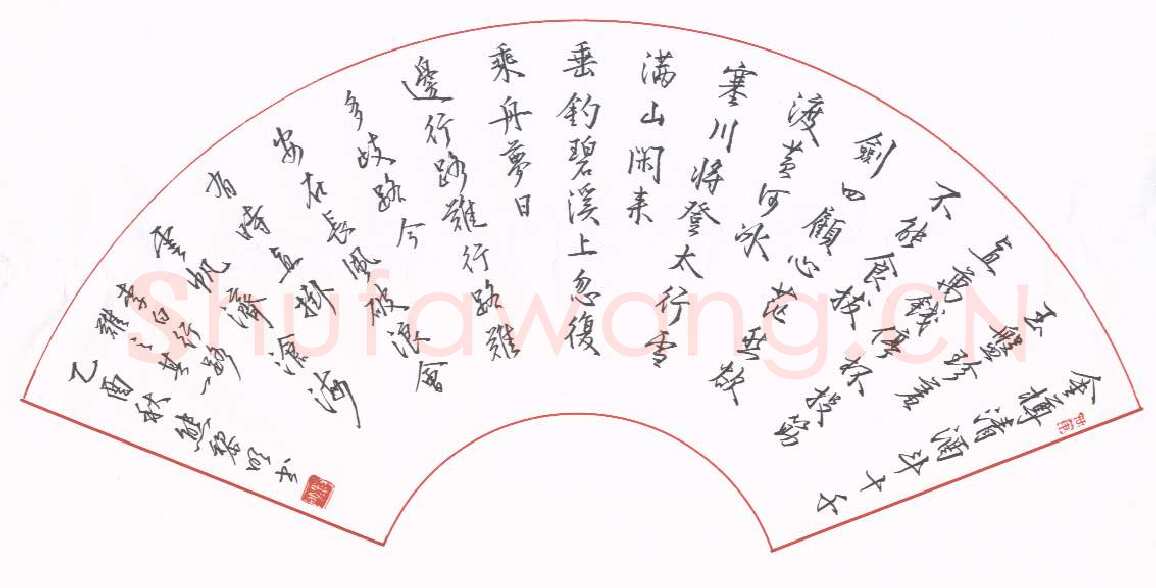 金樽清酒斗十千
玉盤珍羞
直萬錢停杯投筯
不能食拔
劍四顧心茫茫欲
渡黃河冰
塞川將登太行雪
满山閑来
垂釣碧溪上忽復
乘舟夢日
邊行路難行路難
多歧路今
安在長風破浪會
有時直掛
雲帆濟滄海
李白行路
難之其一
乙酉秋熊黎明书
Shufawang.CN